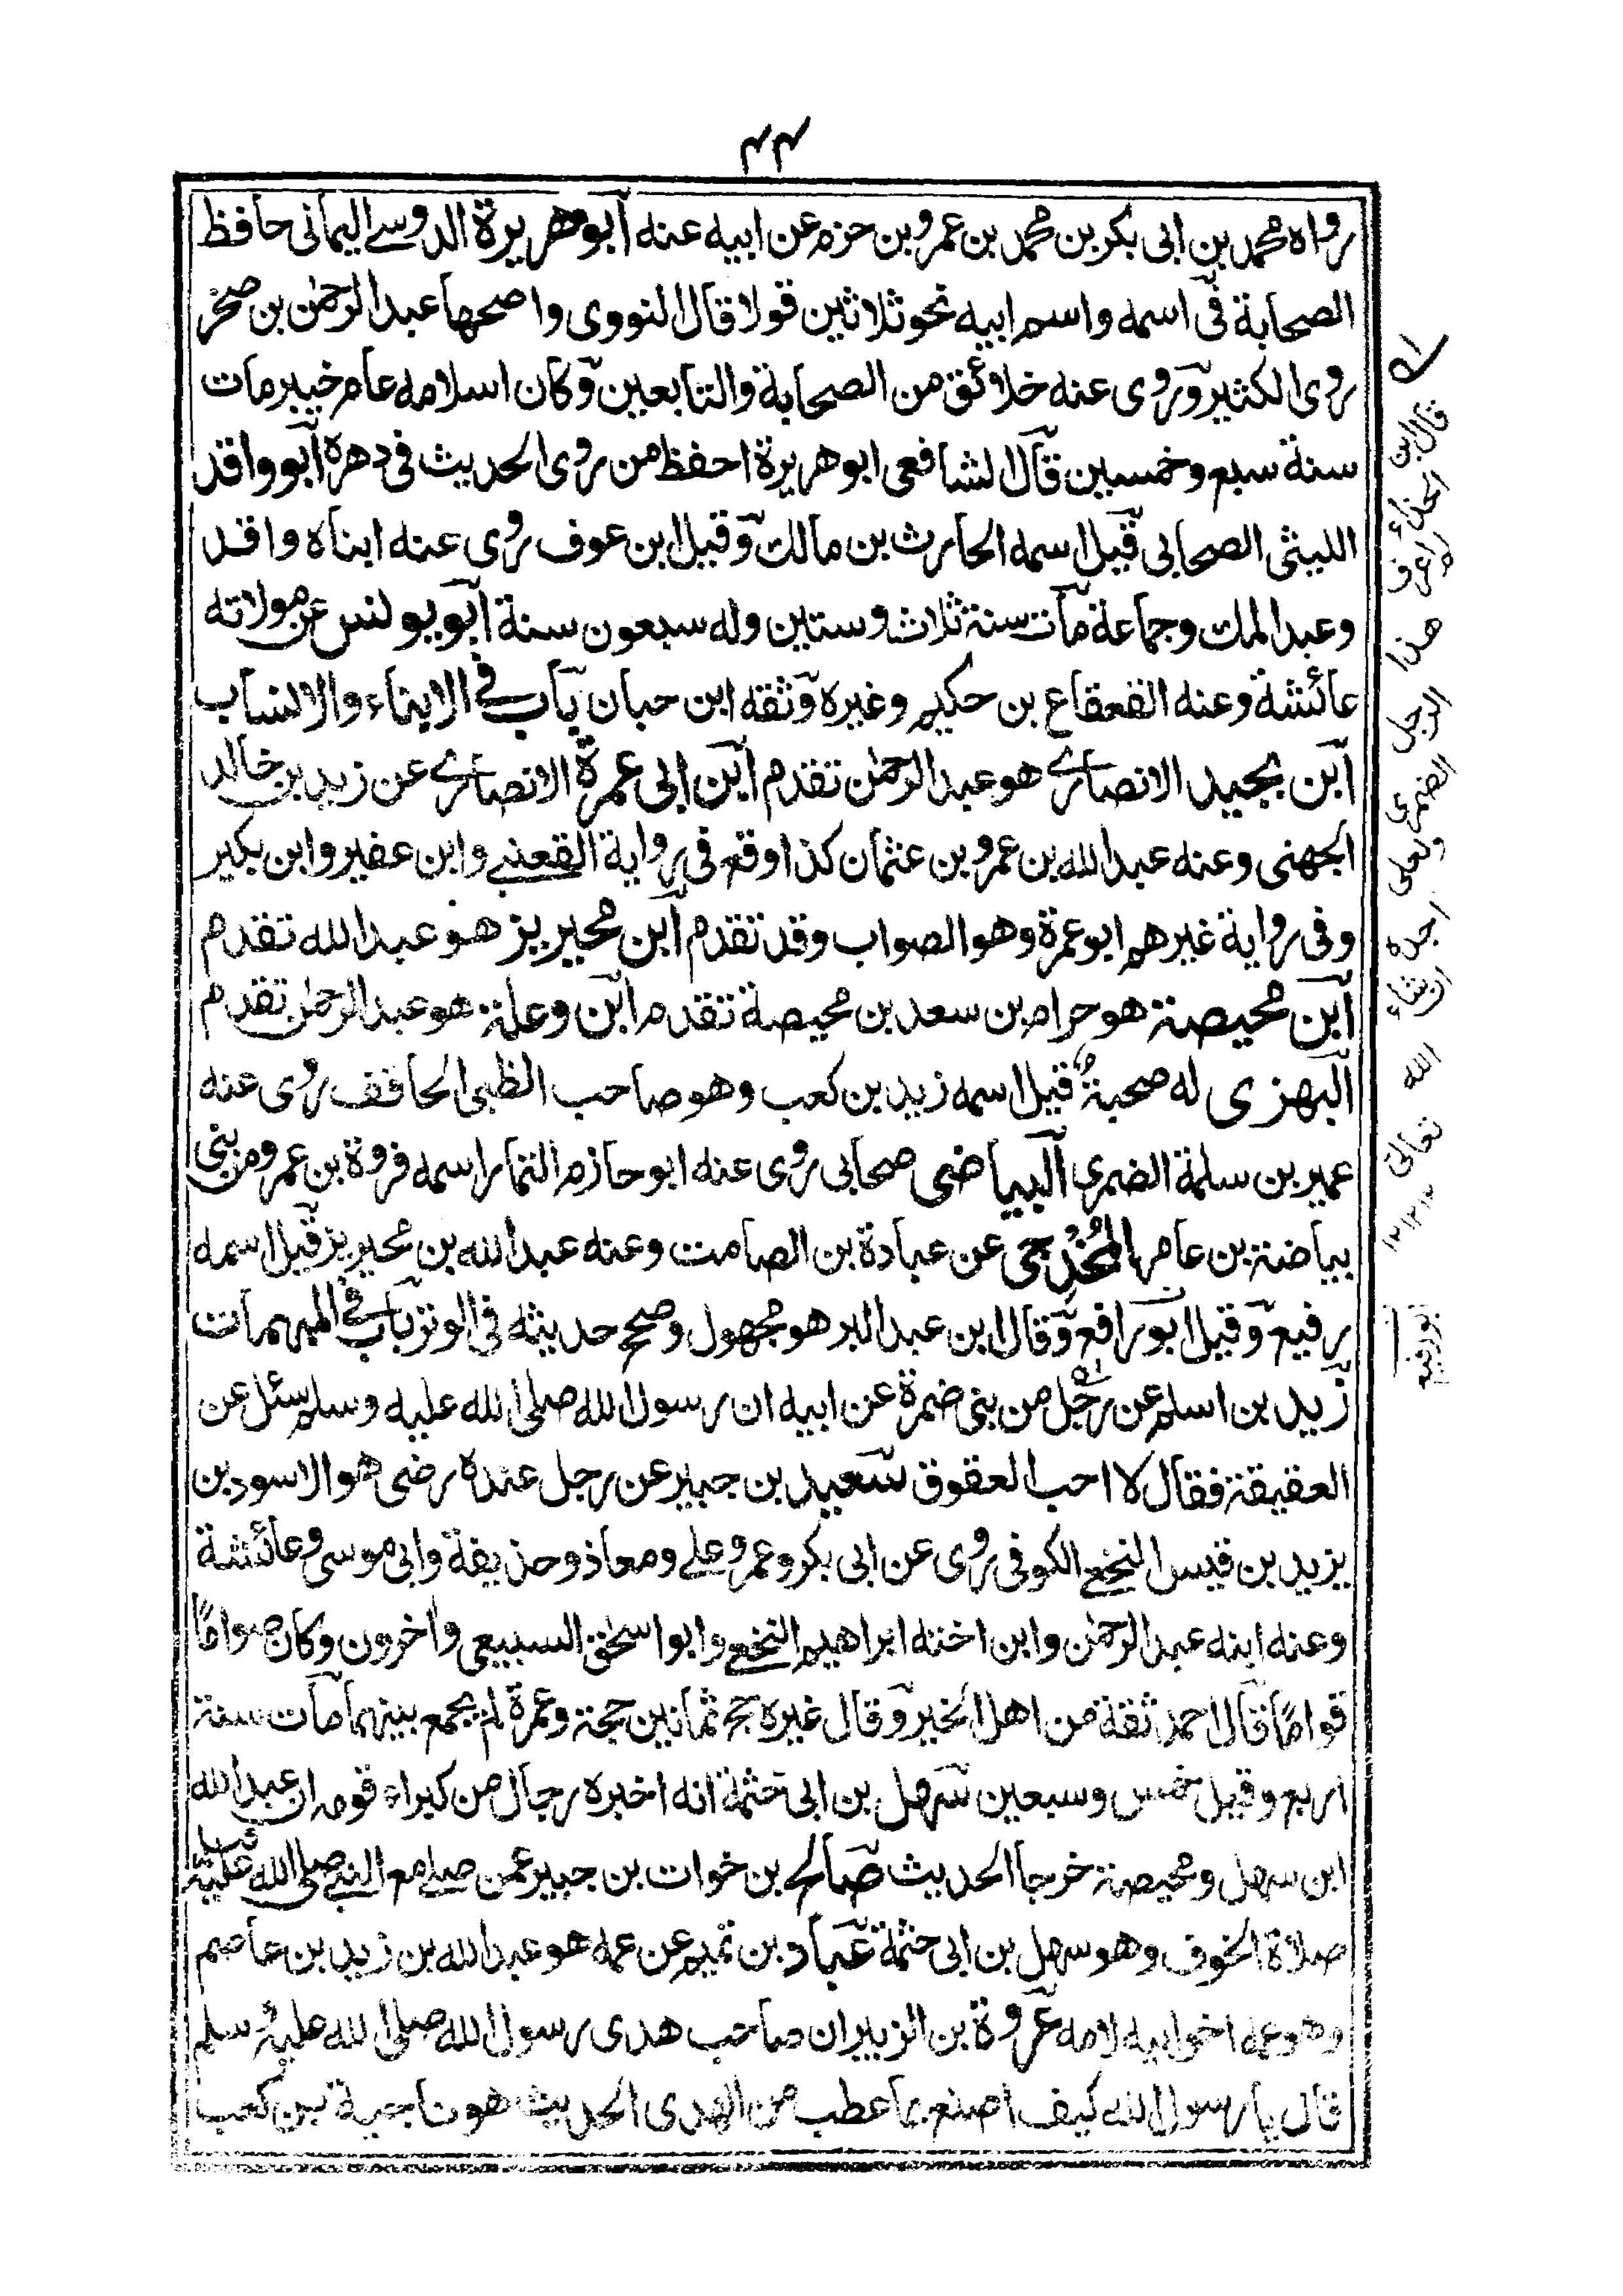 ۴۴
رواه محمد بن ابى بكر بن محمد بن عمرو بن حزم عن ابيه عنه ابو هريرة الدوسے اليمانى حافظ
الصحابة فى اسمه واسم ابيه نحو ثلاثين قولا قال النووى واصحها عبد الرحمٰن بن صخر
روى الكثير وروى عنه خلائق من الصحابة والتابعين وكان اسلامه عام خيبر مات
سنة سبع وخمسين قال الشافعى ابو هريرة احفظ من روى الحديث فى دهره ابو واقد
الليثى الصحابى قيل اسمه الحارث بن مالك وقيل ابن عوف روى عنه ابناه واقد
وعبد الملك وجماعة مات سنة ثلاث وستين وله سبعون سنة ابو يونس عن مولاته
عائشة وعنه القعقاع بن حكيم وغيره وثقه ابن حبان باب فے الابناء والانساب
ابن بجيد الانصارے هو عبد الرحمٰن تقدم ابن ابى عمرة الانصارے عن زيد بن خالد
الجهنى وعنه عبد الله بن عمرو بن عثمان كذا وقع فى رواية القعنبے وابن عفير وابن بكير
وفى رواية غيرهم ابو عمرة وهو الصواب وقد تقدم ابن محيريز هو عبد الله تقدم
ابن محيصة هو حرام بن سعد بن محيصة تقدم ابن وعلة هو عبد الرحمٰن تقدم
البهزى له صحبةٌ قيل اسمه زيد بن كعب وهو صاحب الظبى الحاقف روى عنه
عمير بن سلمة الضمرى البياضى صحابى روى عنه ابو حازم التمار اسمه فروة بن عمرو من بنى
بياضة بن عامر المُخْدِجى عن عبادة بن الصامت وعنه عبد الله بن محيريز قيل اسمه
رفيع وقيل ابو رافع وقال ابن عبد البر هو مجهول وصحح حديثه فى الوتر باب فے المبهمات
زيد بن اسلم عن رجل من بنى ضمرة عن ابيه ان رسول الله صلى الله عليه وسلم سئل عن
العقيقة فقال لا احب العقوق سعيد بن جبير عن رجل عنده رضى هو الاسود بن
يزيد بن قيس النخعے الكوفى روى عن ابى بكر وعمر وعلے ومعاذ وحذيفة وابى موسى وعائشة
وعنه ابنه عبد الرحمٰن وابن اخته ابراهيم النخعے وابو اسحٰق السبيعى واخرون وكان صوامًا
قوامًا قال احمد ثقة من اهل الخير وقال غيره حج ثمانين حجة وعمرة لم يجمع بينهما مات سنة
اربع وقيل خمس وسبعين سهل بن ابى حثمة انه اخبره رجال من كبراء قومه ان عبد الله
ابن سهل ومحيصة خرجا الحديث صالح بن خوات بن جبير عمن صلے مع النبے صلى الله عليه
صلاة الخوف وهو سهل بن ابى حثمة عباد بن تميم عن عمه هو عبد الله بن زيد بن عاصم
وهو عمه اخو ابيه لامه عروة بن الزبير ان صاحب هدى رسول الله صلى الله عليه وسلم
قال يا رسول الله كيف اصنع بما عطب من الهدى الحديث هو ناجية بن كعب
قال ابن
الحذاء
لا اعرف
هذا
الرجل
الضمرى
ولعلى
اجده
ان شاء
الله
تعالى